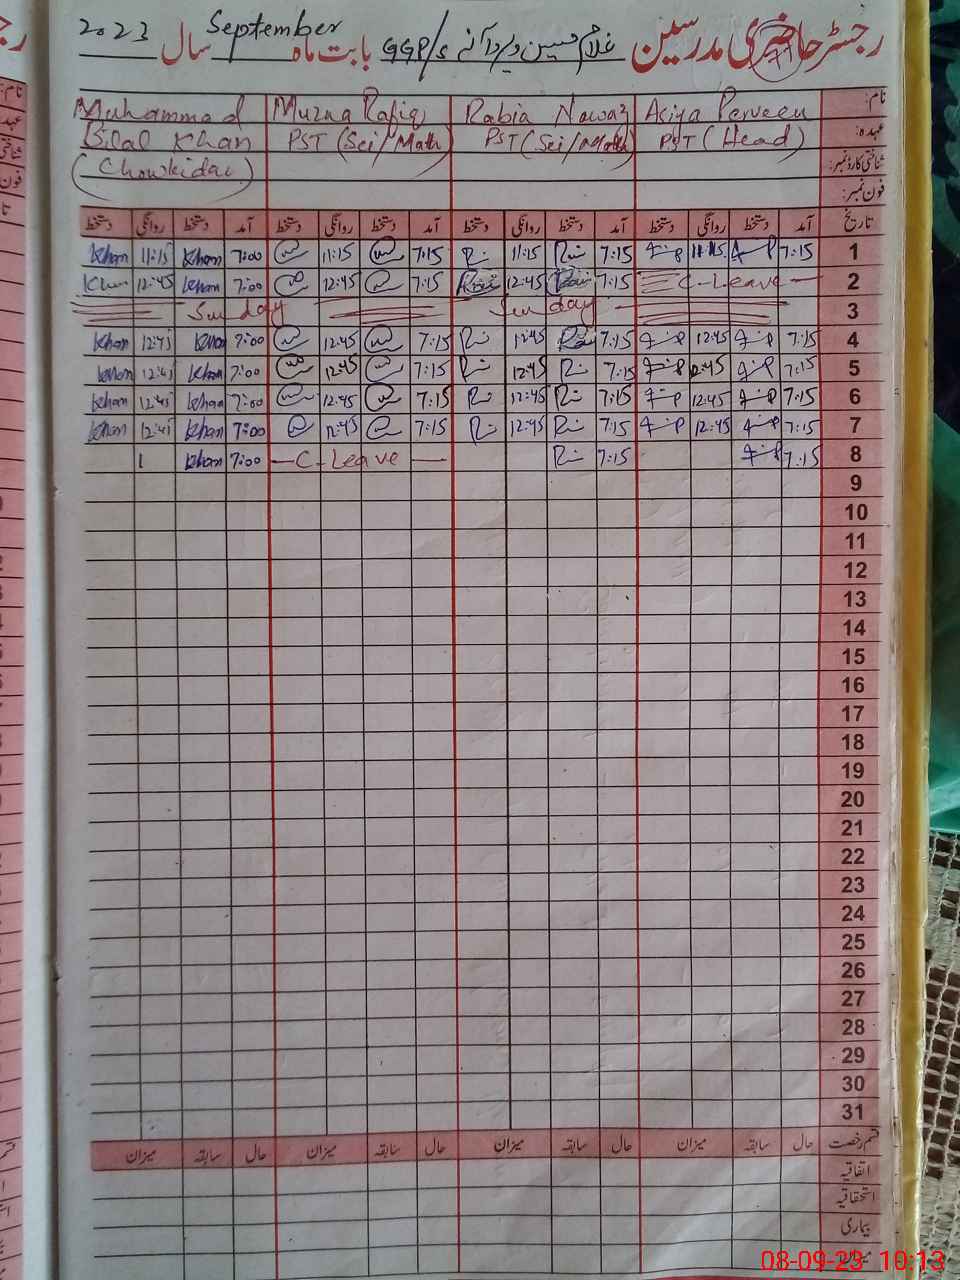 رجسٹر حاضری مدرسین GGP/S بابت ماہ September سال 2023
نام: Asiya Perveen Rabia Nawaz Muzna Rafiq Muhammad
عہدہ: PST (Head) PST (Sci/Math) PST (Sci/Math) Bilal Khan
شناختی کارڈ نمبر: (Chowkidar)
فون نمبر:
تاریخ آمد دستخط روانگی دستخط آمد دستخط روانگی دستخط آمد دستخط روانگی دستخط آمد دستخط روانگی دستخط
1 7:15 11:15 7:15 11:15 7:15 11:15 7:00 Khan 11:15 Khan
2 C-Leave 7:15 12:45 7:15 12:45 7:00 Khan 12:45 Khan
3 Sunday Sunday
4 7:15 12:45 7:15 12:45 7:15 12:45 7:00 Khan 12:45 Khan
5 7:15 12:45 7:15 12:45 7:15 12:45 7:00 Khan 12:45 Khan
6 7:15 12:45 7:15 12:45 7:15 12:45 7:00 Khan 12:45 Khan
7 7:15 12:45 7:15 12:45 7:15 12:45 7:00 Khan 12:45 Khan
8 7:15 7:15 C-Leave 7:00 Khan
9
10
11
12
13
14
15
16
17
18
19
20
21
22
23
24
25
26
27
28
29
30
31
قسم رخصت حال سابقہ میزان حال سابقہ میزان حال سابقہ میزان حال سابقہ میزان
اتفاقیہ
استحقاقیہ
بیماری
08-09-23 10:13